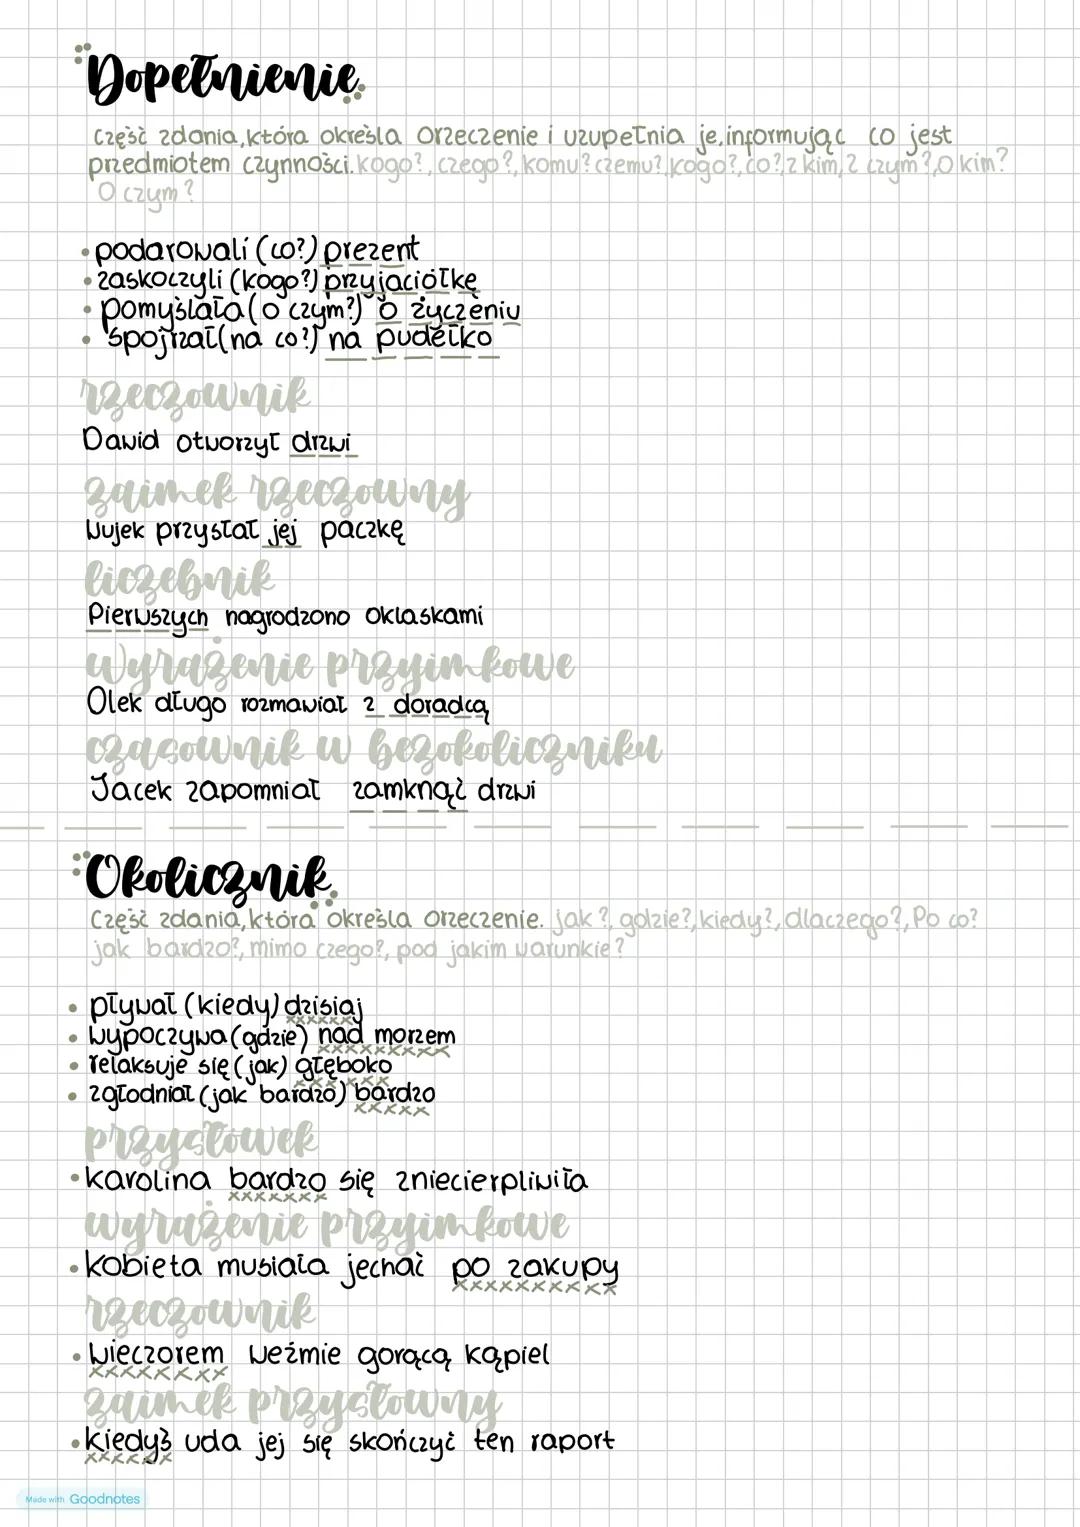 Dopełnienie
część zdania, która określa orzeczenie i uzupełnia je, informując co jest
przedmiotem czynności. kogo?, czego?, komu? czemu?, kogo?, co?, z kim, z czym?, O kim?
O czym?
• podarowali (co?) prezent
• zaskoczyli (kogo?) przyjaciółkę
• pomyślała (o czym?) o życzeniu
• spojrzał (na co?) na pudełko
rzeczownik
Dawid otworzył drzwi
zaimek rzeczowny
Wujek przysłał jej paczkę
liczebnik
Pierwszych nagrodzono oklaskami
wyrażenie przyimkowe
Olek długo rozmawiał z doradcą
czasownik w bezokoliczniku
Jacek zapomniał zamknąć drzwi
Okolicznik
Część zdania, która określa orzeczenie. jak?, gdzie?, kiedy?, dlaczego?, Po co?
jak bardzo?, mimo czego?, pod jakim warunkie?
• pływał (kiedy) dzisiaj
• wypoczywa (gdzie) nad morzem
• relaksuje się (jak) głęboko
• zgłodniał (jak bardzo) bardzo
przysłówek
• Karolina bardzo się zniecierpliwiła
wyrażenie przyimkowe
• kobieta musiała jechać po zakupy
rzeczownik
• wieczorem weźmie gorącą kąpiel
zaimek przysłowny
• kiedyś uda jej się skończyć ten raport
Made with Goodnotes